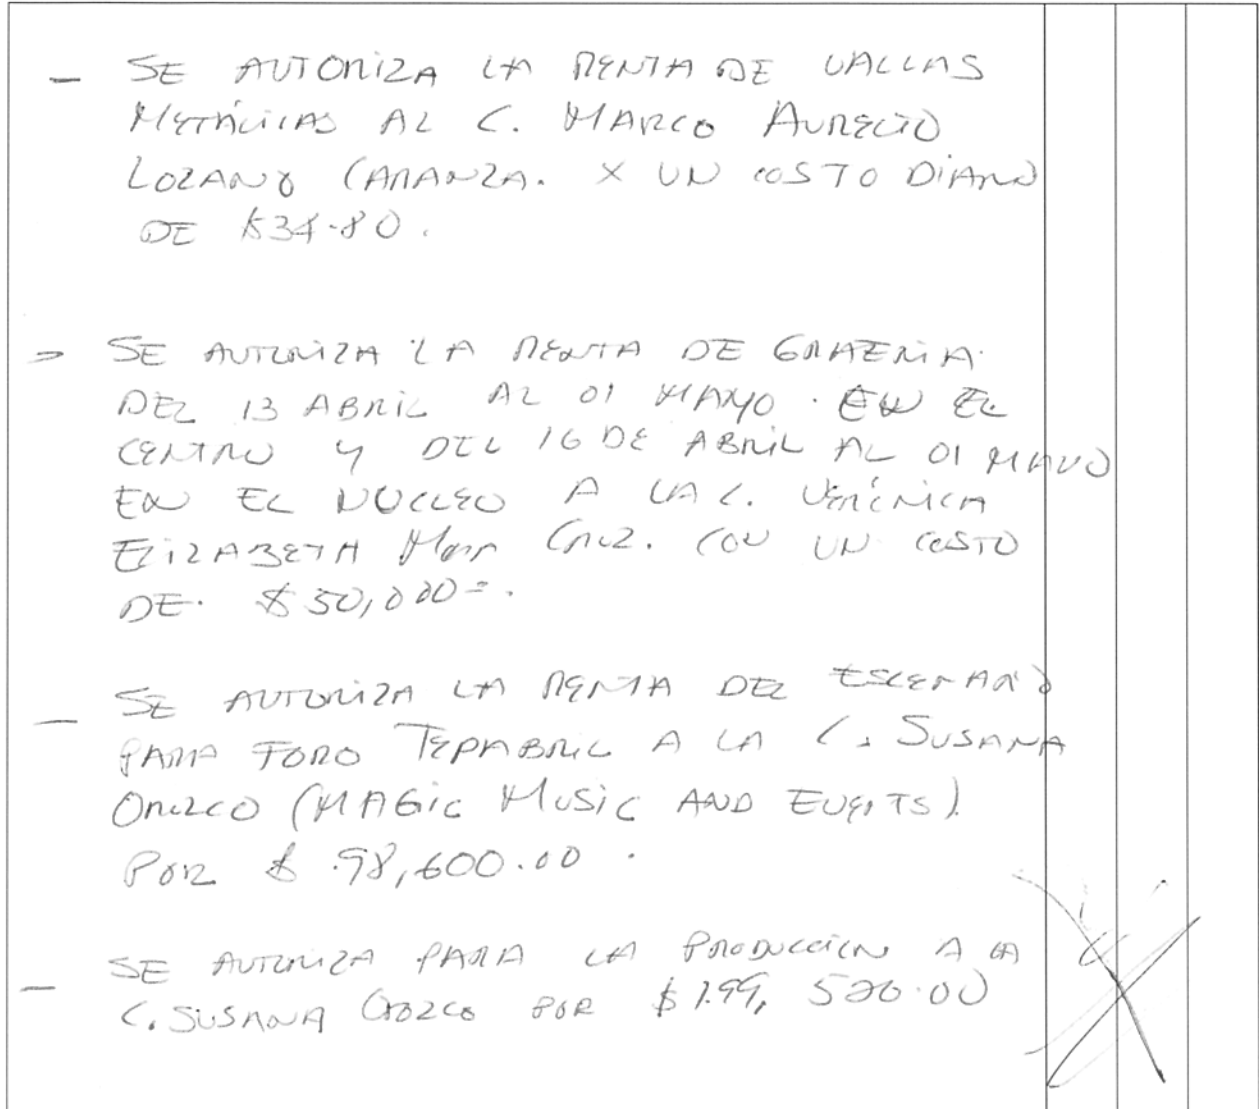 - SE AUTORIZA LA RENTA DE VALLAS
METÁLICAS AL C. MARCO AURELIO
LOZANO CARANZA. X UN COSTO DIARIO
DE $34.80.
- SE AUTORIZA LA RENTA DE GRADERIA.
DEL 13 ABRIL AL 01 MAYO. EN EL
CENTRO Y DEL 16 DE ABRIL AL 01 MAYO
EN EL NUCLEO A LA C. VERÓNICA
ELIZABETH CRUZ. CON UN COSTO
DE. $50,000=.
- SE AUTORIZA LA RENTA DEL ESCENARIO
PARA FORO TEPABRIL A LA C. SUSANA
OROZCO (MAGIC MUSIC AND EVENTS).
POR $ 98,600.00.
- SE AUTORIZA PARA LA PRODUCCIÓN A LA
C. SUSANA OROZCO POR $199, 520.00